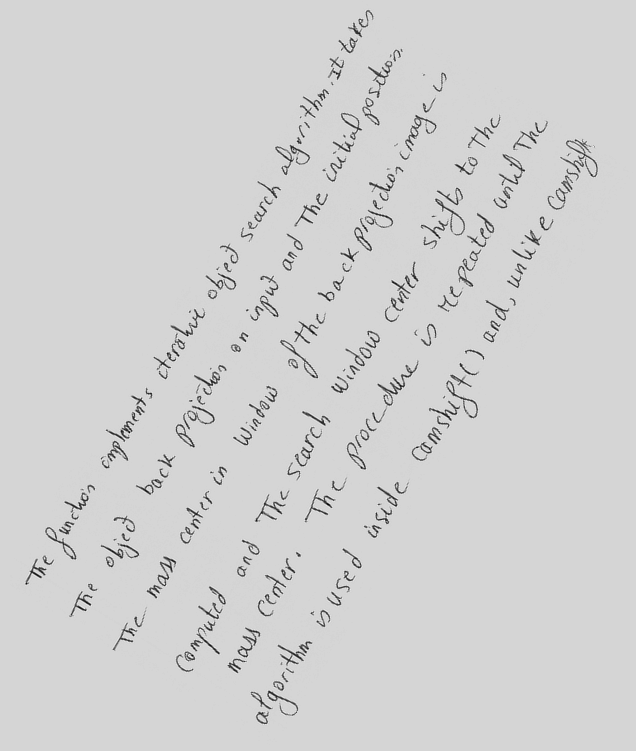 The function implements iterative object search algorithm. It takes
The object back projection on input and The initial position.
The mass center in Window of the back projection image is
Computed and The search Window Center shifts to The
mass Center. The procedure is repeated until The
algorithm is used inside Camshift() and, unlike Camshift